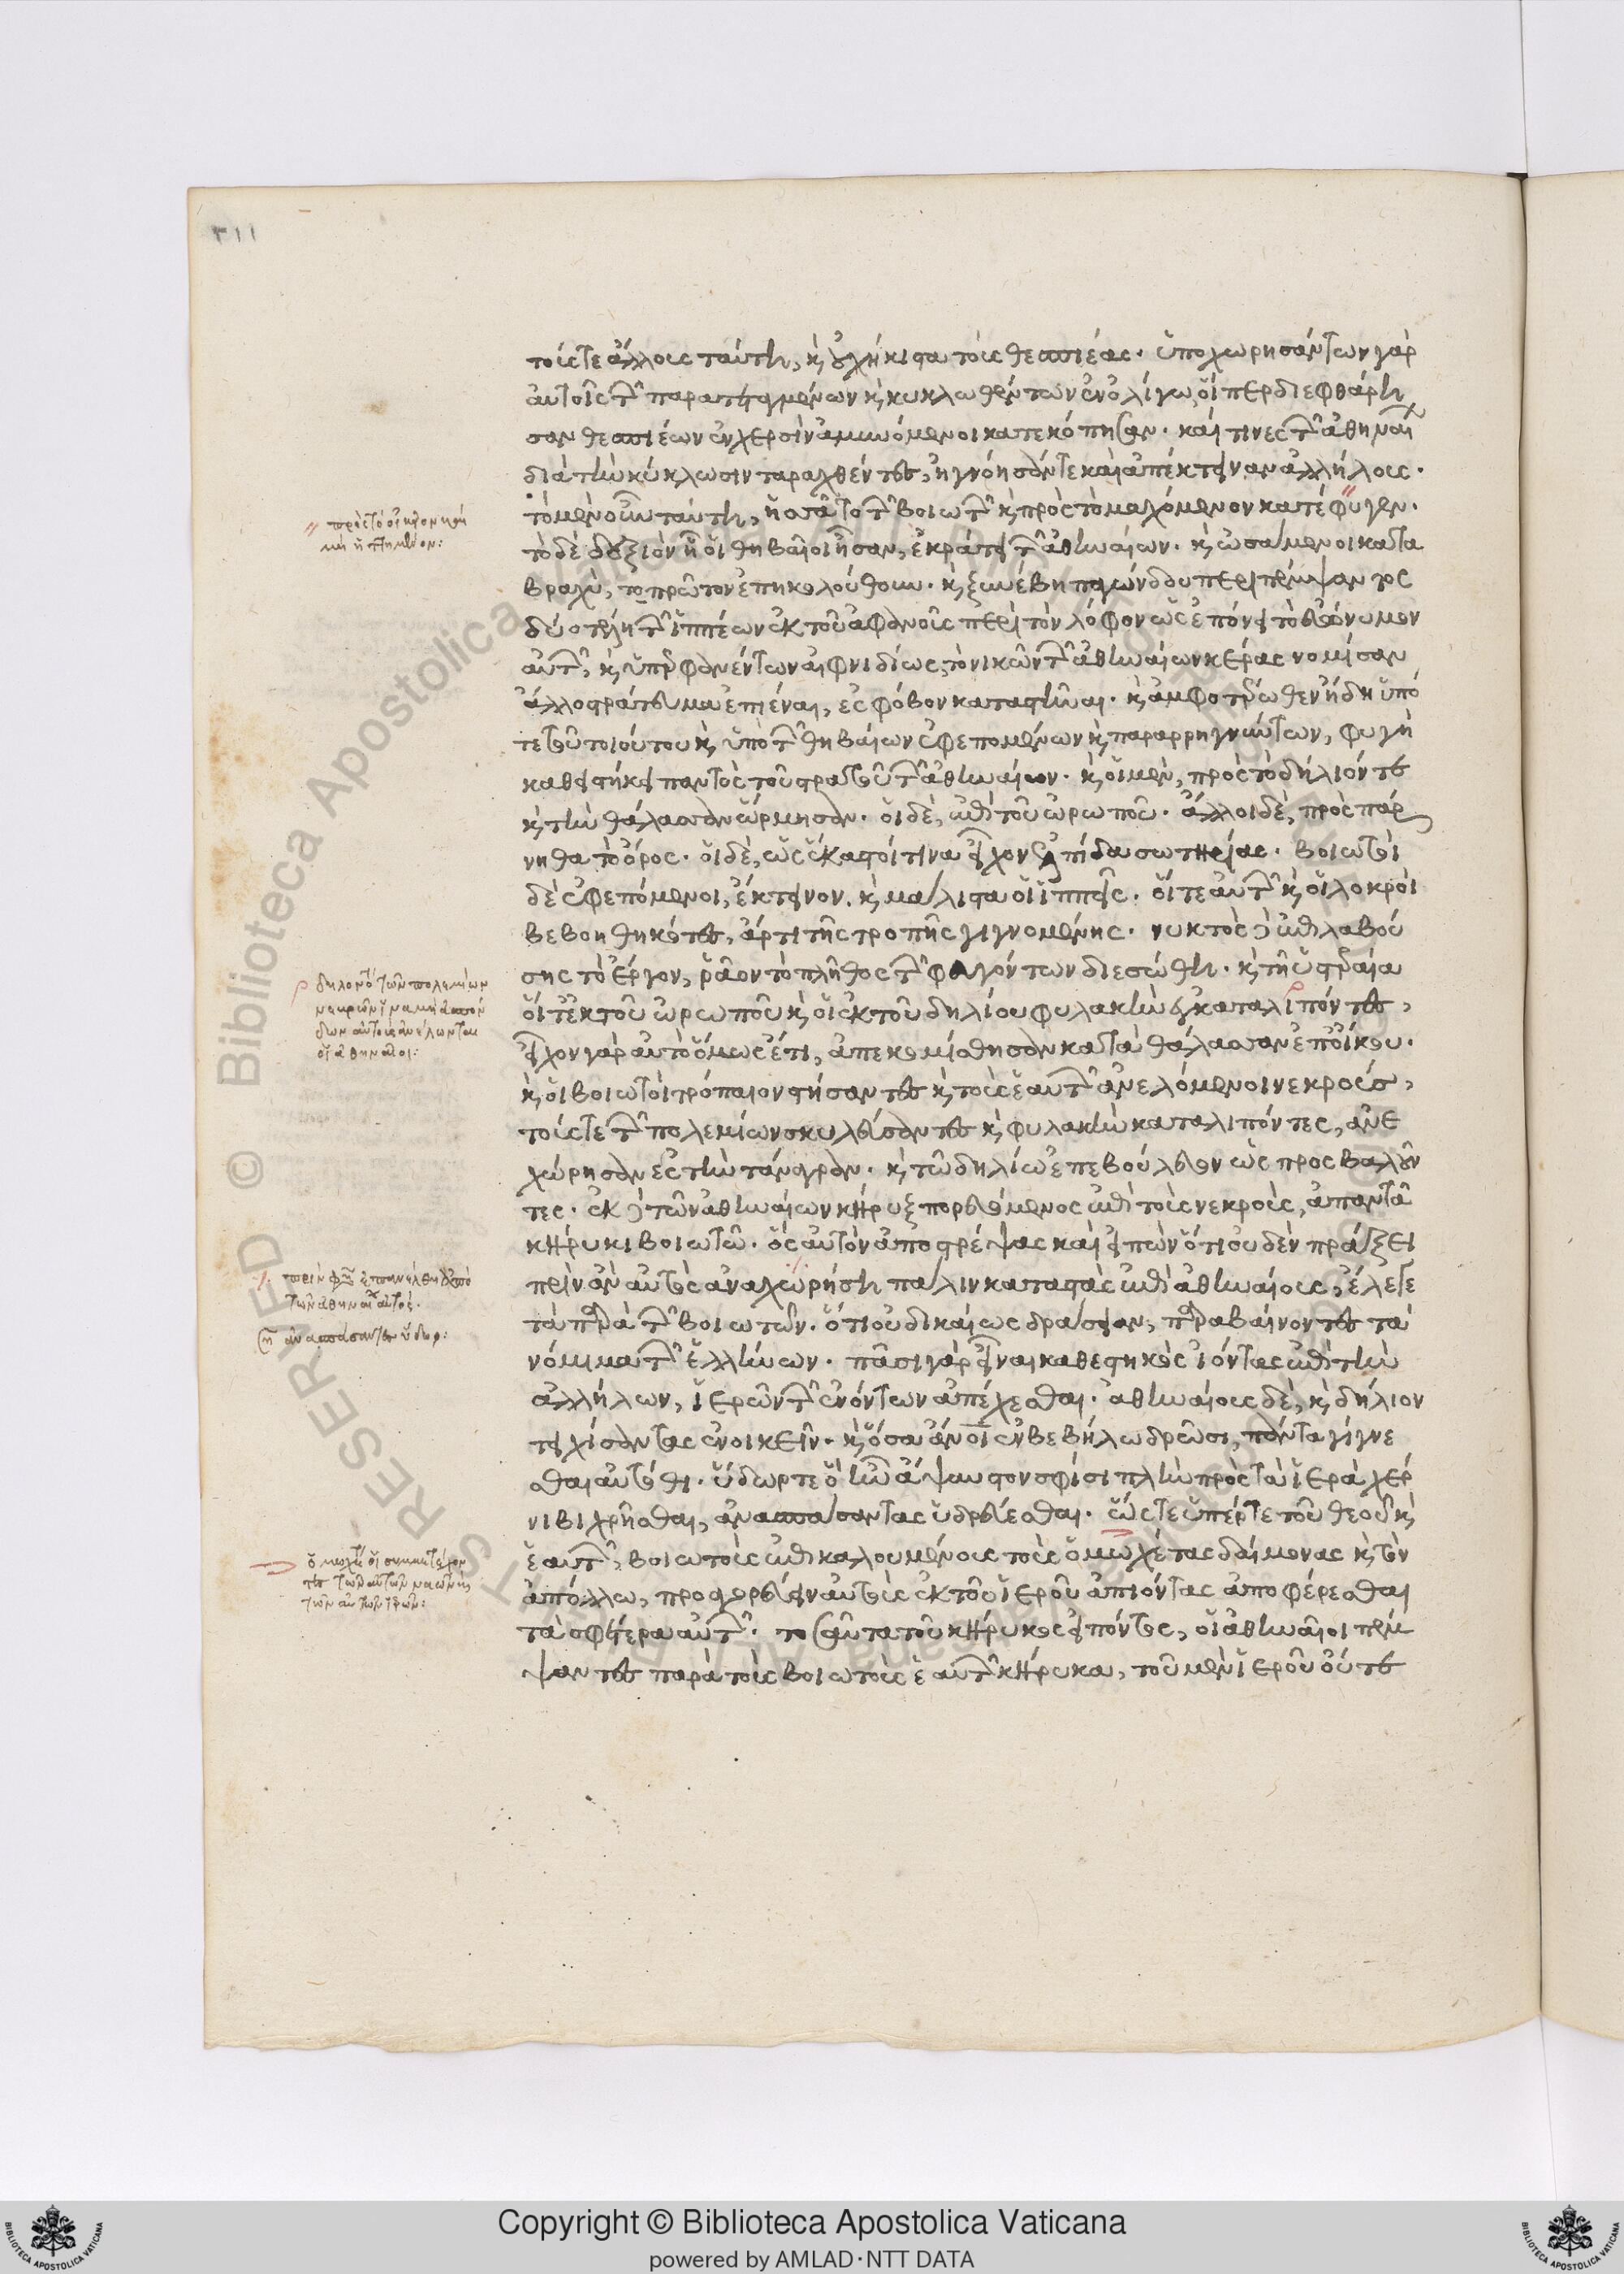 τούς τε ἄλλους ταύτη, καὶ οὐχ ἥκιστα τοὺς θεσπιέας. ὑποχωρησάντων γὰρ
αὐτοῖς τῶν παρατεταγμένων καὶ κυκλωθέντων ἐν ὀλίγω, οἵπερ διεφθάρη
σαν θεσπιέων ἐν χερσὶν ἀμυνόμενοι κατεκόπησαν. καί τινες τῶν ἀθηναίων
διὰ τὴν κύκλωσιν ταραχθέντες, ἠγνόησάν τε καὶ ἀπέκτειναν ἀλλήλους.
τὸ μὲν οὖν ταύτη, ἡσσᾶτο τῶν βοιωτῶν καὶ πρὸς τὸ μαχόμενον κατέφυγεν.
τὸ δὲ δεξιὸν ἧ οἱ θηβαῖοι ἦσαν, ἐκράτει τῶν ἀθηναίων. καὶ ὠσάμενοι κατα
βραχὺ, τὸ πρῶτον ἐπηκολούθουν. καὶ ξυνέβη παγώνδου περιπέμψαντος
δύο τέλη τῶν ἱππέων ἐκ τοῦ ἀφανοῦς περὶ τὸν λόφον ὡς ἐπόνει τὸ εὐώνυμον
αὐτῶν, καὶ ὑπερφανέντων αἰφνιδίως, τὸ νικῶν τῶν ἀθηναίων κέρας νομίσαν
ἄλλο στράτευμα ἐπιέναι, ἐς φόβον καταστῆναι. καὶ ἀμφοτέρωθεν ἤδη ὑπό
τε τοῦ τοιούτου καὶ ὑπὸ τῶν θηβαίων ἐφεπομένων καὶ παραρρηγνύντων, φυγὴ
καθειστήκει παντὸς τοῦ στρατοῦ τῶν ἀθηναίων. καὶ οἱ μὲν, πρὸς τὸ δήλιόν τε
καὶ τὴν θάλασσαν ὥρμησαν. οἱ δὲ, ἐπὶ τοῦ ὠρωποῦ. ἄλλοι δὲ, πρὸς πάρ
νηθα τὸ ὄρος. οἱ δὲ, ὡς ἕκαστοί τινα εἶχον ἐλπίδα σωτηρίας. βοιωτοὶ
δὲ ἐφεπόμενοι, ἔκτεινον. καὶ μάλιστα οἱ ἱππεῖς. οἵ τε αὐτῶν καὶ οἱ λοκροὶ
βεβοηθηκότες, ἄρτι τῆς τροπῆς γιγνομένης. νυκτὸς δὲ ἐπιλαβού
σης τὸ ἔργον, ῥᾶον τὸ πλῆθος τῶν φευγόντων διεσώθη. καὶ τῆ ὑστεραία
οἵ τε ἐκ τοῦ ὠρωποῦ καὶ οἱ ἐκ τοῦ δηλίου φυλακὴν ἐγκαταλιπόντες,
εἶχον γὰρ αὐτὸ ὅμως ἔτι, ἀπεκομίσθησαν κατὰ θάλασσαν ἐπ' οἴκου.
καὶ οἱ βοιωτοὶ τρόπαιον στήσαντες καὶ τοὺς ἑαυτῶν ἀνελόμενοι νεκροὺς,
τούς τε τῶν πολεμίων σκυλεύσαντες καὶ φυλακὴν καταλιπόντες, ἀνε
χώρησαν ἐς τὴν τάναγραν. καὶ τῶ δηλίω ἐπεβούλευον ὡς προσβαλοῦν
τες. ἐκ δὲ τῶν ἀθηναίων κῆρυξ πορευόμενος ἐπὶ τοὺς νεκροὺς, ἀπαντᾶ
κήρυκι βοιωτῶ. ὃς αὐτὸν ἀποστρέψας καὶ εἰπὼν ὅτι οὐδὲν πράξει
πρὶν ἂν αὐτὸς ἀναχωρήση πάλιν καταστὰς ἐπὶ ἀθηναίους, ἔλεγε
τὰ παρὰ τῶν βοιωτῶν. ὅτι οὐ δικαίως δράσειαν, παραβαίνοντες τὰ
νόμιμα τῶν ἑλλήνων. πᾶσι γὰρ εἶναι καθεστηκὸς ἰόντας ἐπὶ τὴν
ἀλλήλων, ἱερῶν τῶν ἐνόντων ἀπέχεσθαι. ἀθηναίους δὲ, καὶ δήλιον
τειχίσαντας ἐνοικεῖν. καὶ ὅσα ἄνοι ἐν βεβήλω δρῶσι, πάντα γίγνε
σθαι αὐτόθι. ὕδωρ τε ὃ ἦν ἄψαυστον σφίσι πλὴν πρὸς τὰ ἱερὰ χέρ
νιβι χρῆσθαι, ἀνασπάσαντας ὑδρεύεσθαι. ὥστε ὑπέρ τε τοῦ θεοῦ καὶ
ἑαυτῶν, βοιωτοὺς ἐπικαλουμένους τοὺς ὁμωχέτας δαίμονας καὶ τὸν
ἀπόλλω, προαγορεύειν αὐτοὺς ἐκ τοῦ ἱεροῦ ἀπιόντας ἀποφέρεσθαι
τὰ σφέτερα αὐτῶν. τοσαῦτα τοῦ κήρυκος εἰπόντος, οἱ ἀθηναῖοι πέμ
ψαντες παρὰ τοὺς βοιωτοὺς ἑαυτῶν κήρυκα, τοῦ μὲν ἱεροῦ οὔτε
δηλονότι τῶν πολεμίων
νεκρῶν ἵνα μὴ
οἱ ἀθηναῖοι:
ἀνασπάσαντες ὕδωρ: